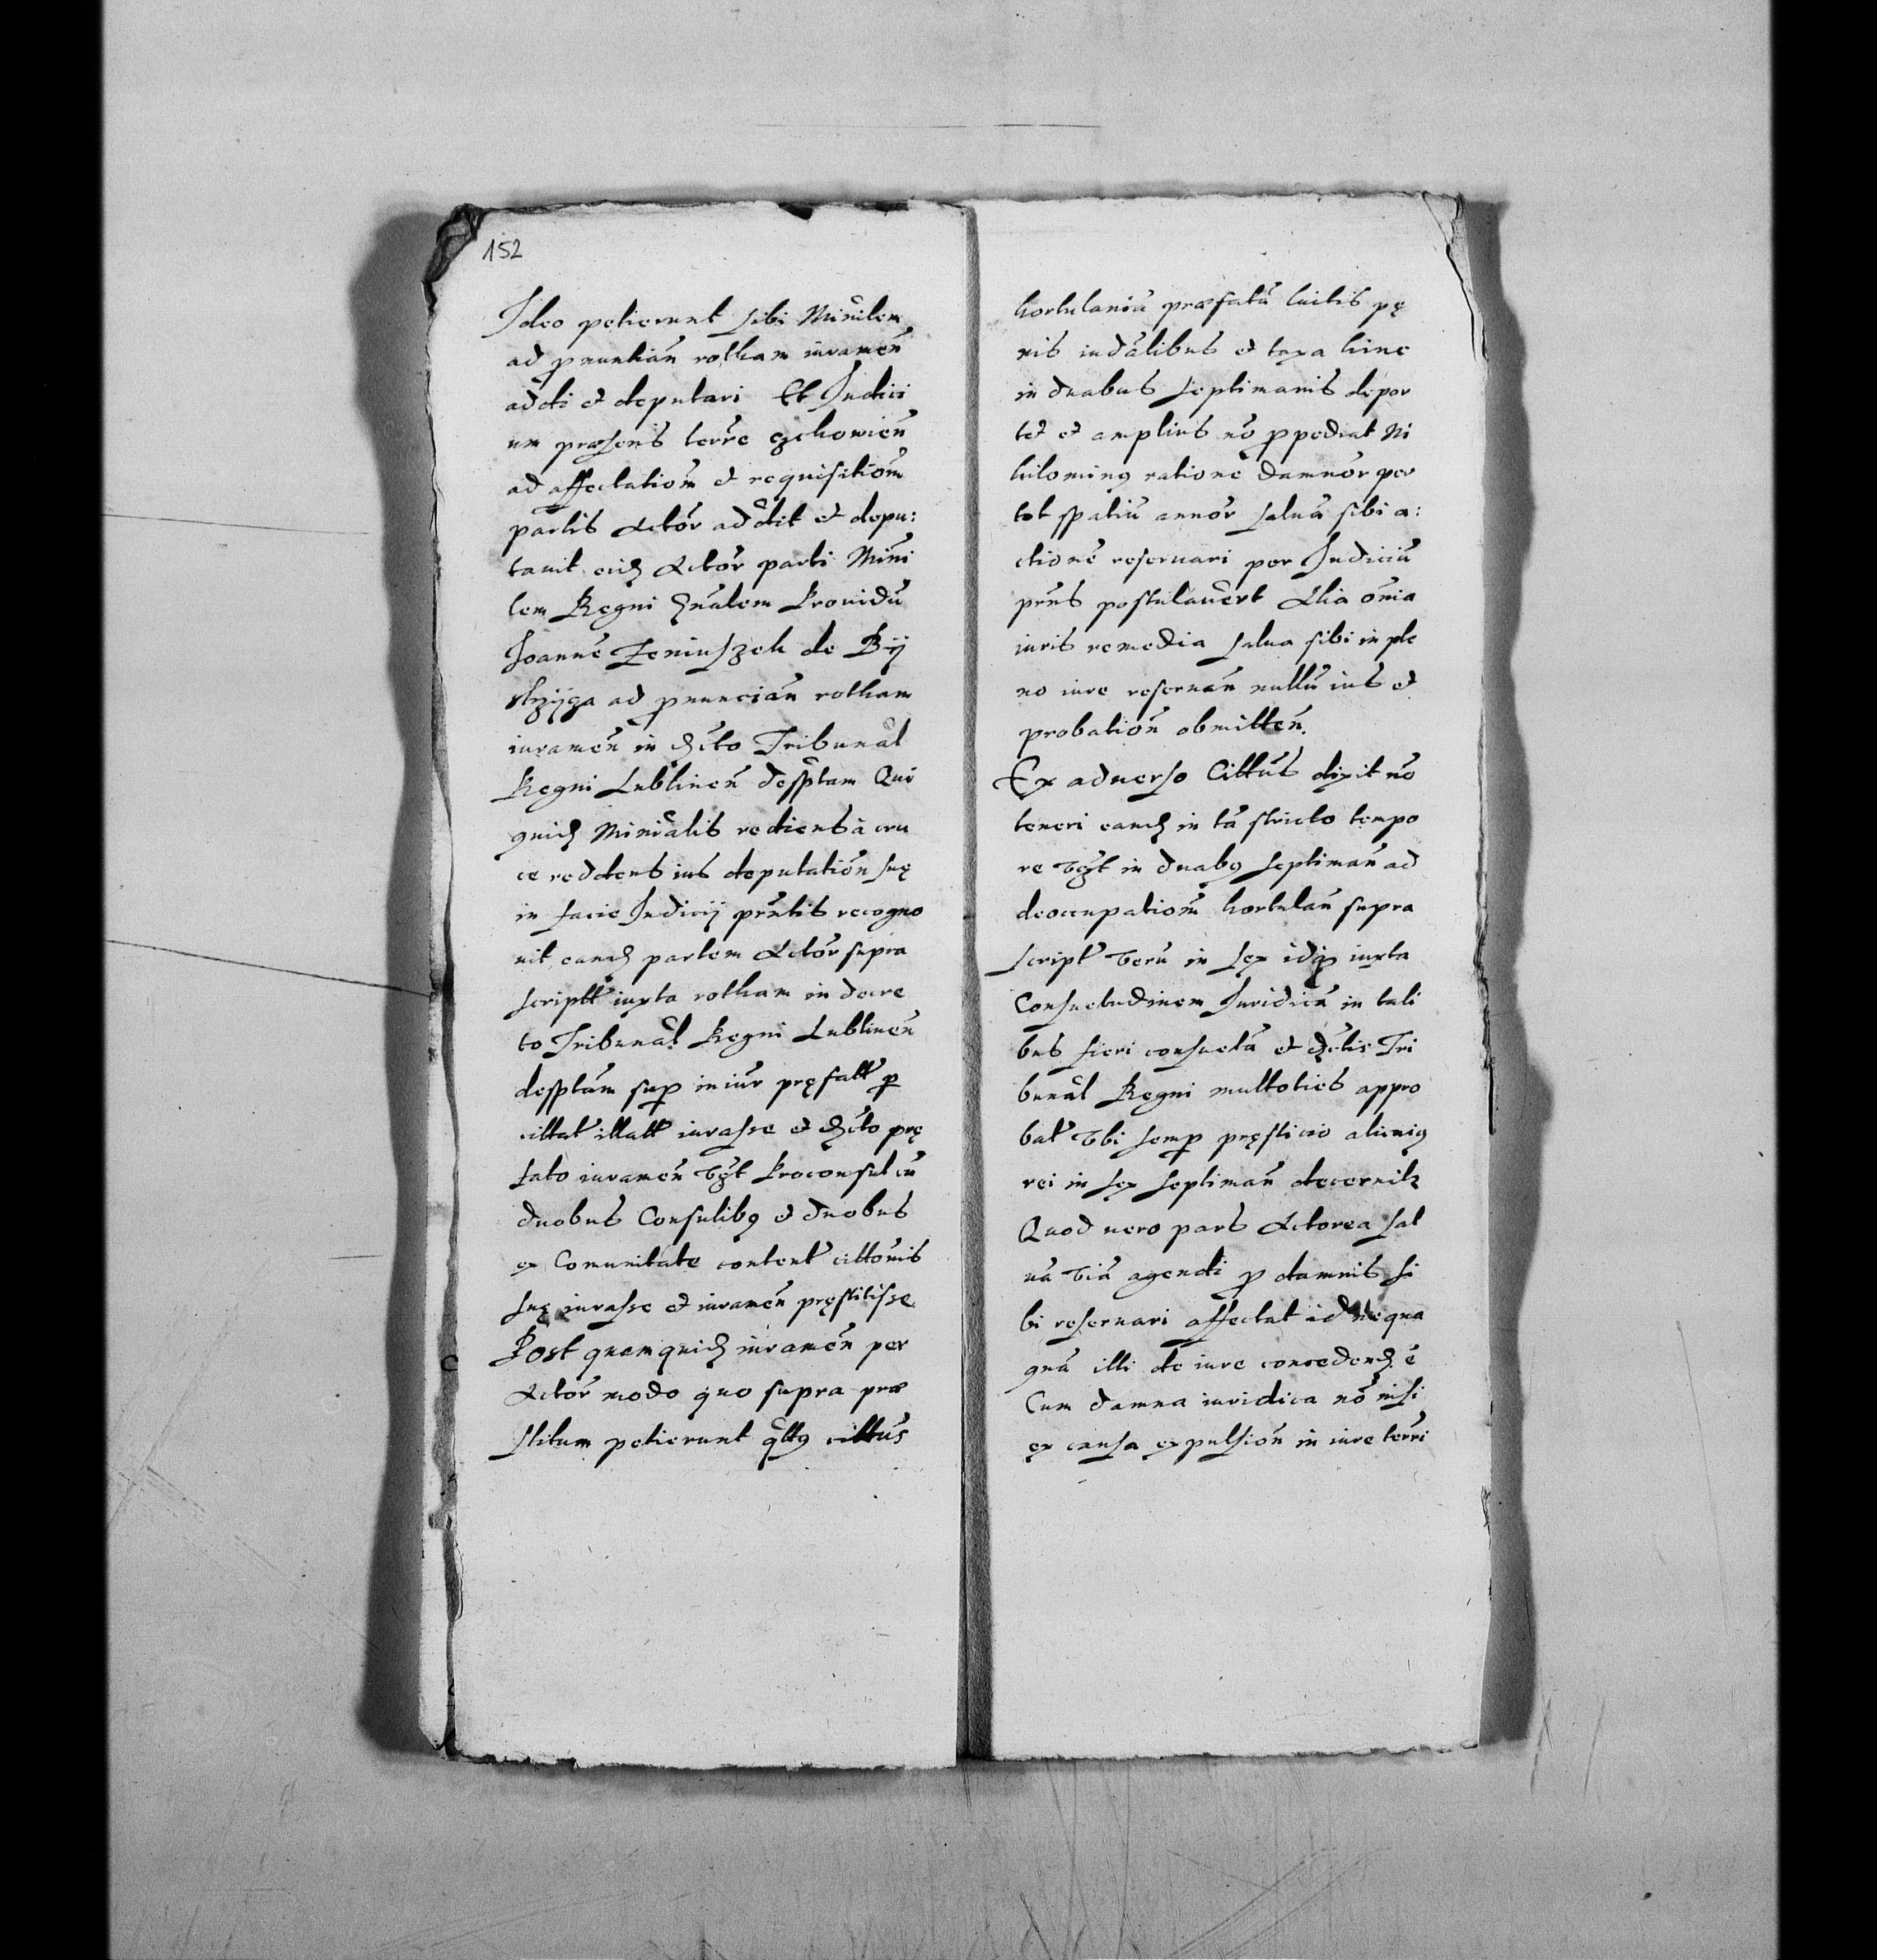 152
Ideo petierunt sibi Minilem
ad pnuntian rotham iuramen
addi et deputari Et Iudici
um præsens terre czchowien
ad affectationm et requisitionm
partis Actor addit et depu:
tauit eid Actor parti Mini
lem Regni gnalem Prouidu
Joanne Zeniuszek de Bij
strzijga ad pnuncian rotham
iuramen in dcto Tribunal
Regni Lublinen dessptam Qui
quid Minialis rediens a cru
ce reddens ius deputation suę
in facie Iudicij pntis recogno
uit eand partem Actor supra
scriptt iuxta rotham in decre
to Tribunal Regni Lublinen
desptam sup iniur pręfatt p
cittat illatt iurasse et dcto prę
fato iuramen vgt Proconsul cu
duobus Consulibq et duobus
ex Comunitate content cittonis
suę iurasse et iuramen pręstitisse
Post quam quid iuramen per
Actor modo quo supra præ
stitum petierunt qttq cittus
hortulaniu præfatu luitis pę
nis indalibus et taxa hinc
in duabus septimanis depor
tet et amplius no ppediat Ni
hilominq ratione damnor per
tot spatiu annor salua sibi a:
ctione reseruari per Iudiciu
pns postulauert Alia onia
iuris remedia salua sibi in ple
no iure reseruan nullu ius et
probation obmitten.
Ex aduerso Cittus dixit no
teneri eand in ta stricto tempo
re vgt in duabq septiman ad
deoccupationm hortulan supra
script veru in sex idq iuxta
Consuetudinem Iuridica in tali
bus fieri consueta et dctis Tri
bunal Regni multoties appro
bat Vbi semp pręstitio alicuiq
rei in sex septiman decernitr
Quod uero pars Actorea sal
ua via agendi p damnis si
bi reseruari affectat id nequa
qua illi de iure concedend e
Cum damna iuridica no nisi
ex causa expulsion in iure terri